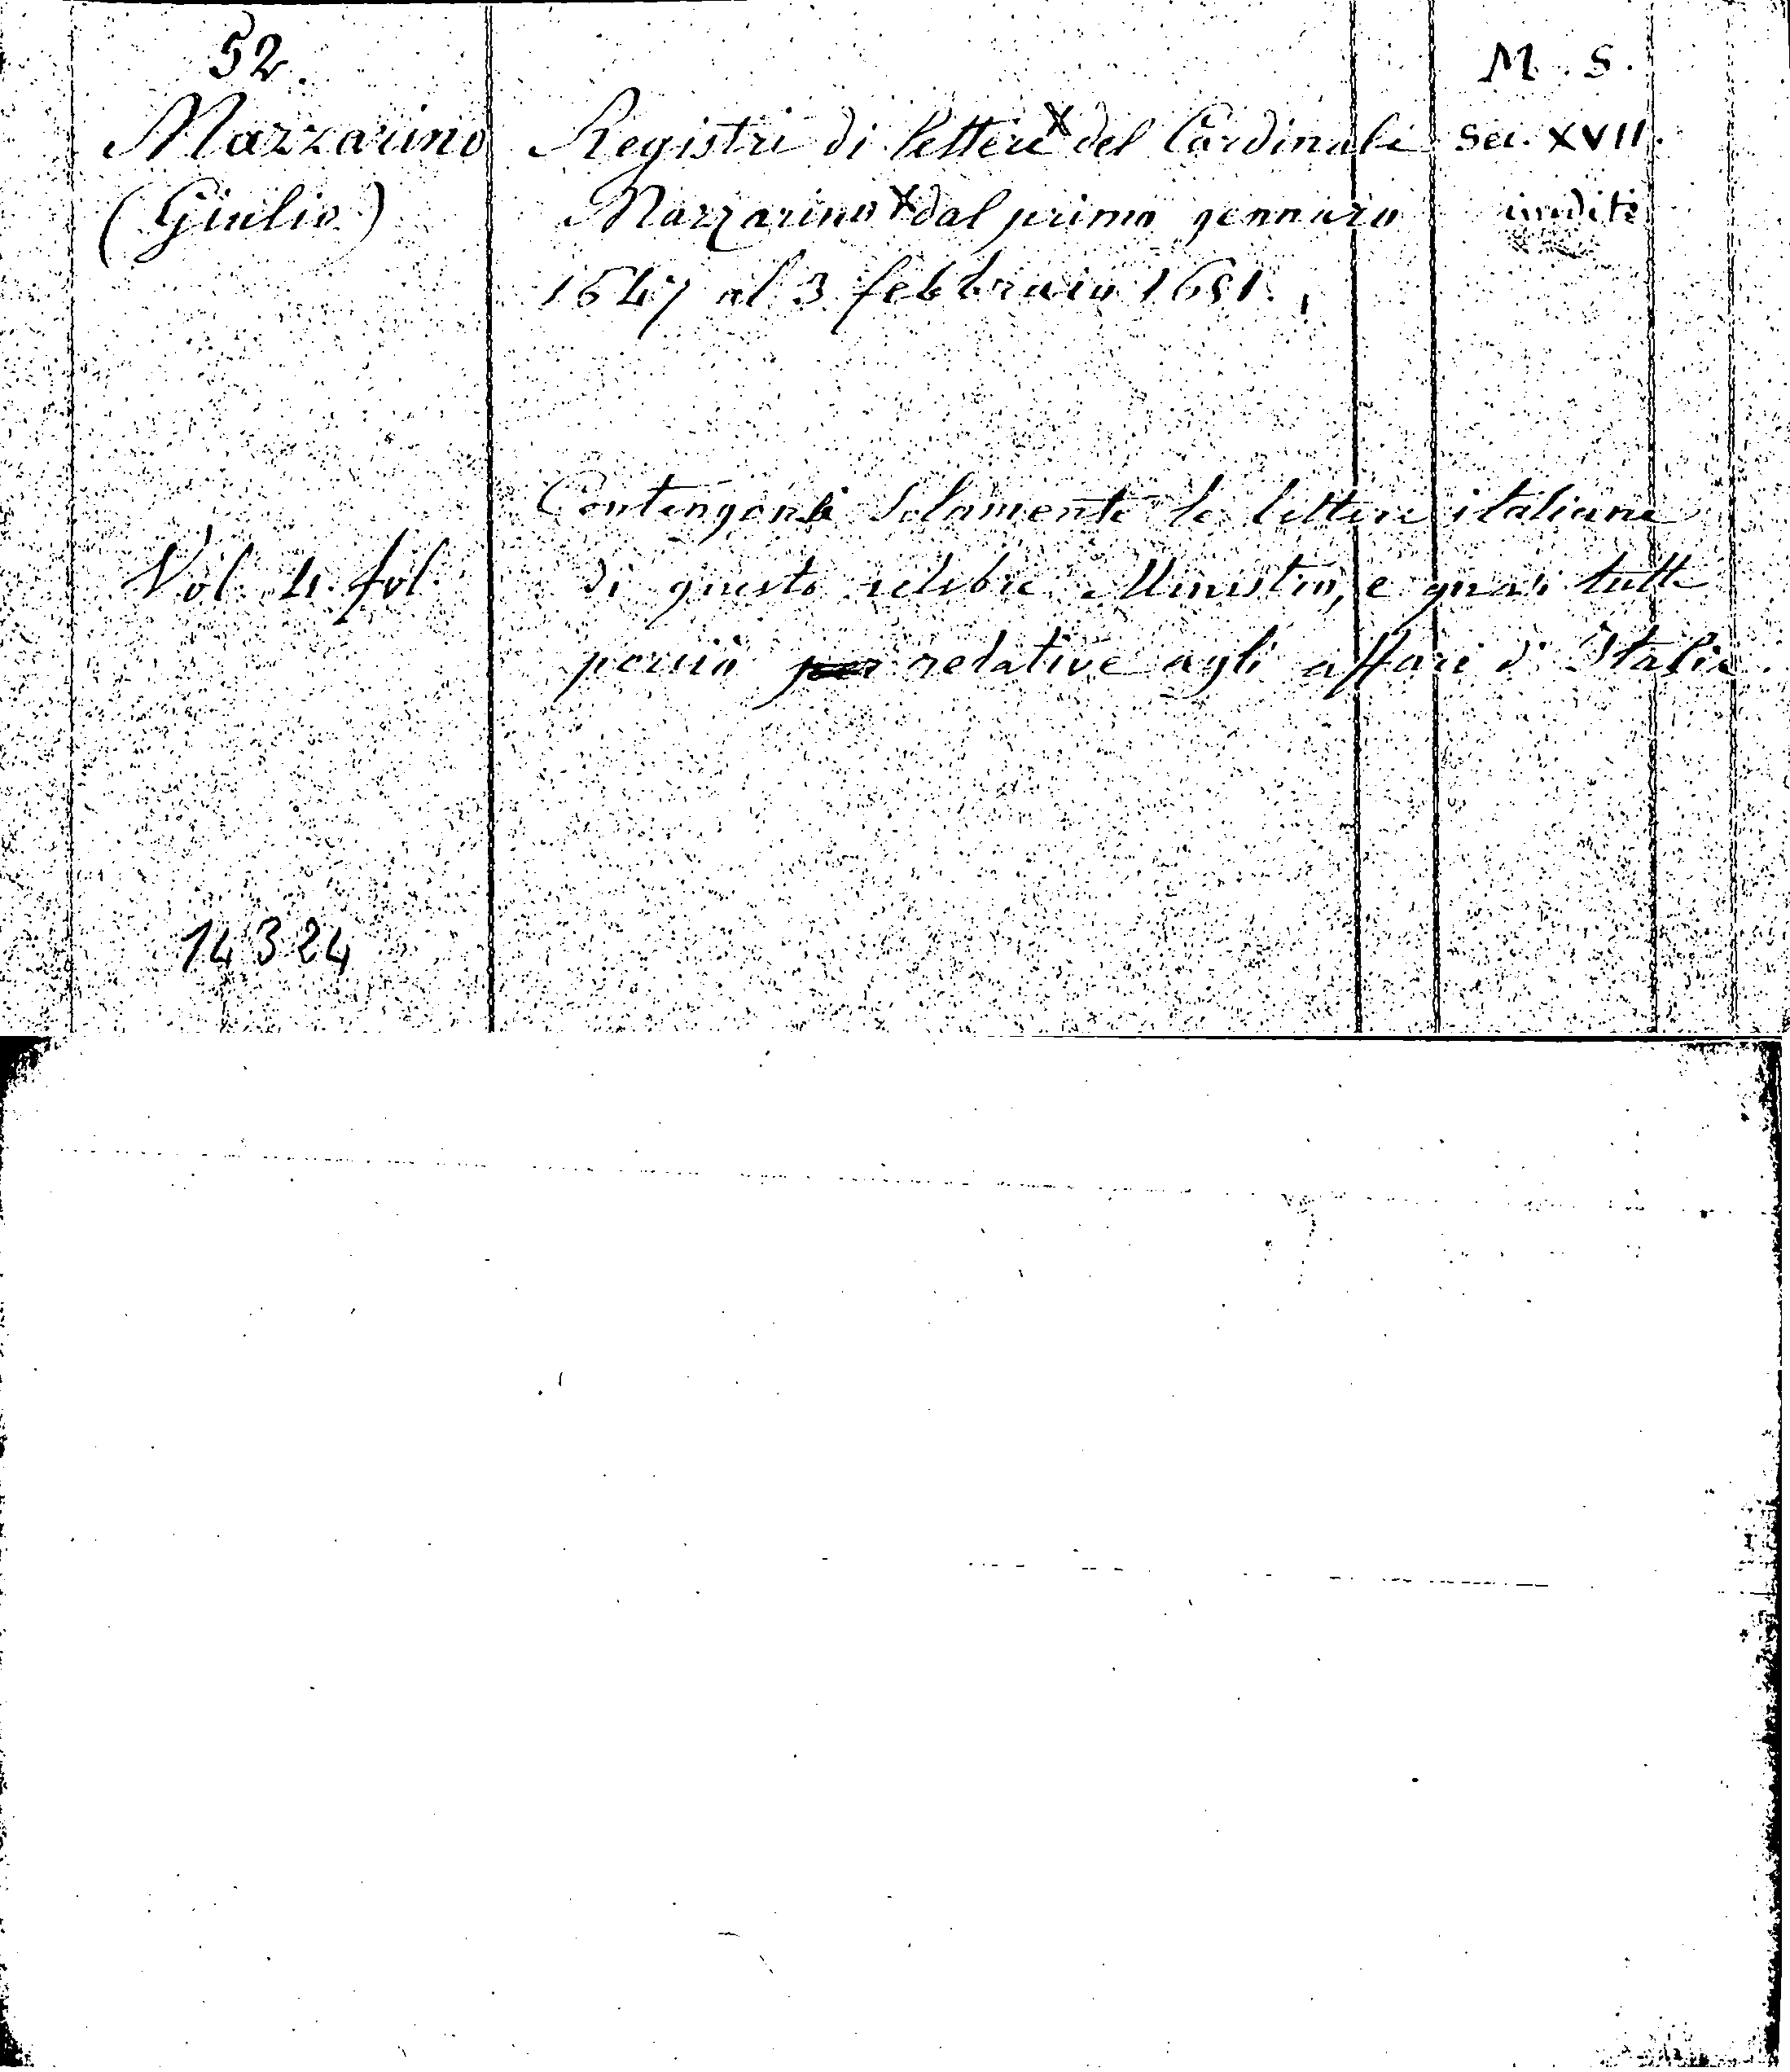 52.
M. S.
Mazzarino
Registri di lettere X del Cardinale
Sec. XVII.
(Giulio)
Mazzarino X dal primo gennaro
inedite
1647 al 3 febbraio 1651.
Contengonsi solamente le lettere italiane
Vol. 4. fol.
di questo celebre Ministro, e quasi tutte
perciò per relative agli affari d'Italia.
14324